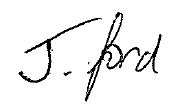 J. ford